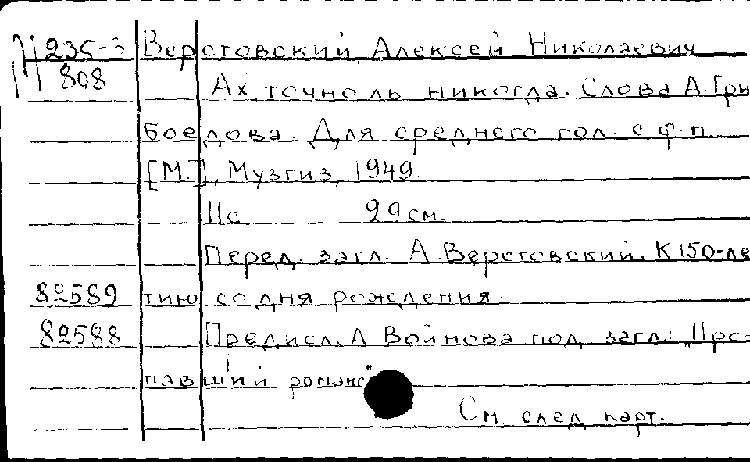 235-3 Верстовский Алексей Николаевич
808 Ах, точно ль никогда. Слова А. Гри-
боедова. Для среднего гол. с ф-п.
[М.], Музгиз, 1949.
11с 29 см.
Перед. загл. А. Верстовский. К 150-ле-
82589 тию со дня рождения.
82588 Предисл. А. Войнова под загл.: "Про-
павший романс"
См. след. карт.